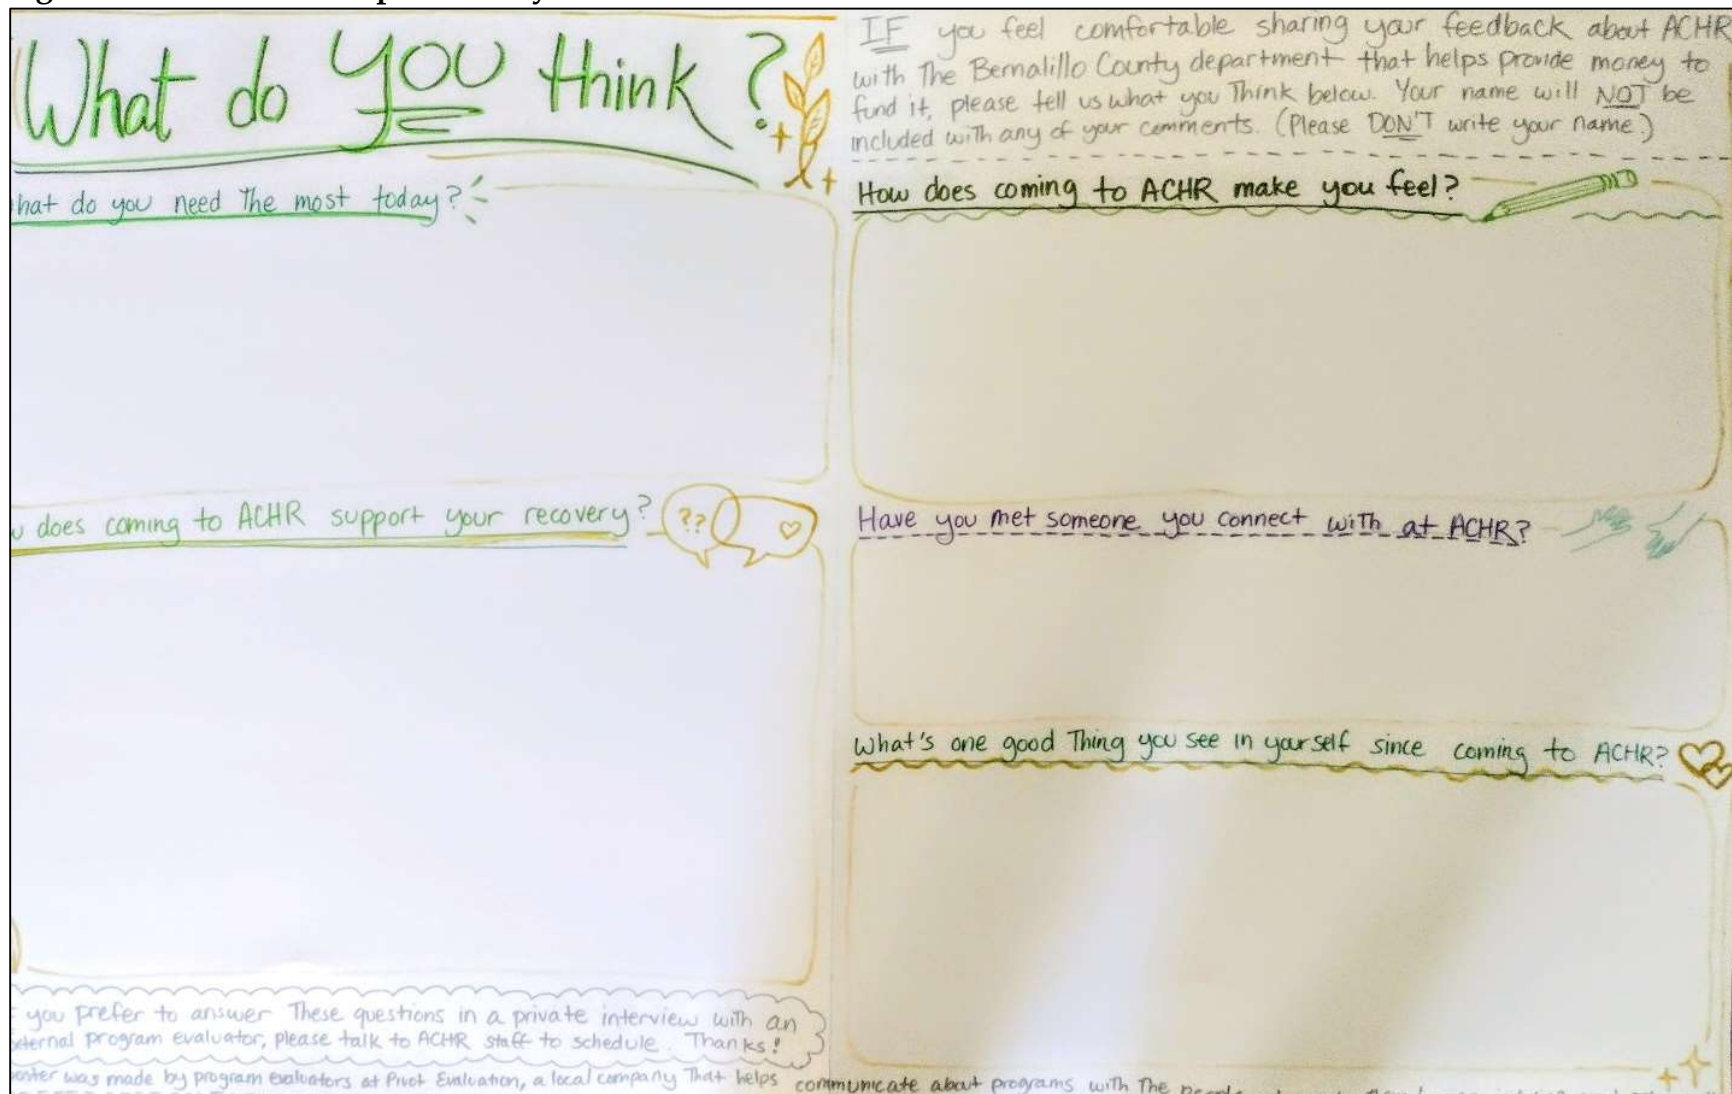 What do you think?
hat do you need the most today?
does coming to ACHR support your recovery?
??
you prefer to answer These questions in a private interview with an
ternal program evaluator, please talk to ACHR staff to schedule. Thanks!
was made by program evaluators at Pivot Evaluation, a local company That helps communicate about programs with The
IF you feel comfortable sharing your feedback about ACHR
with The Bernalillo County department that helps provide money to
fund it, please tell us what you Think below. Your name will NOT be
included with any of your comments. (Please DON'T write your name.)
How does coming to ACHR make you feel?
Have you met someone you connect with at ACHR?
What's one good Thing you see in yourself since coming to ACHR?